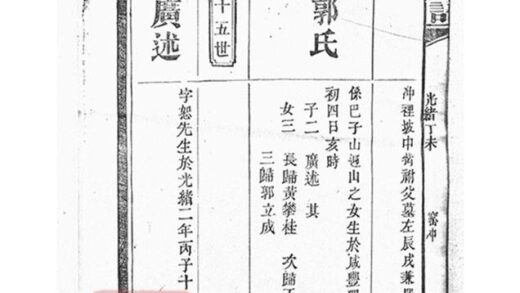 光緒丁未
沖裡坡中
祔父墓左辰戌兼
郭氏
係巴子山
山之女生於咸豐
初四日亥時
子二 廣述 其
女三 長歸黃攀桂 次歸
三歸郭立成
十五世
廣述
字恕先生於光緒二年丙子十